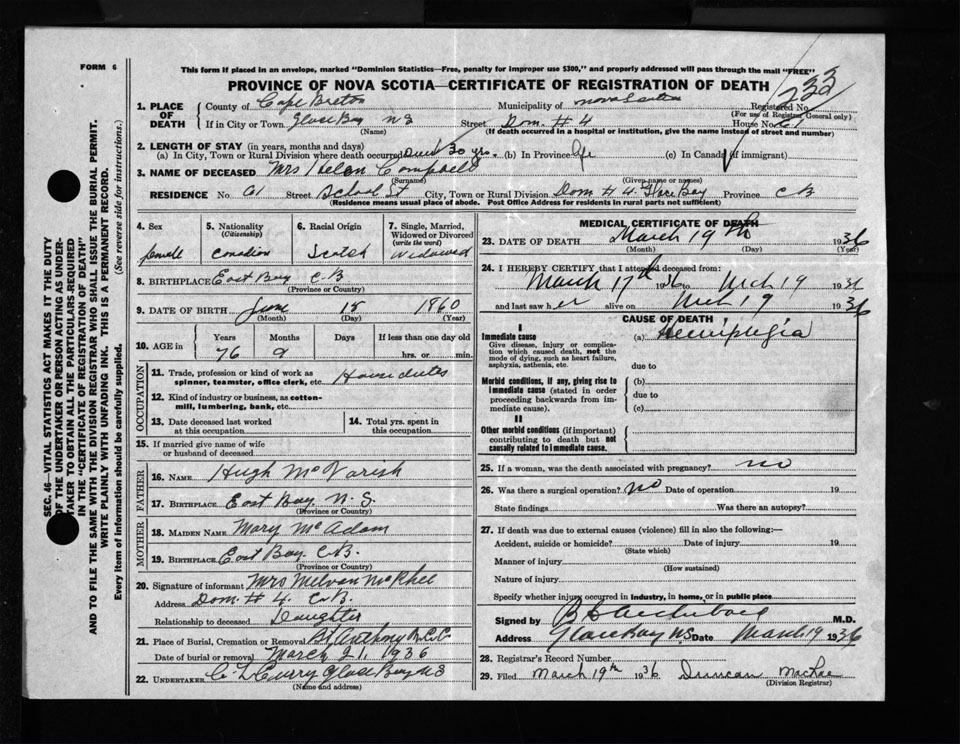 FORM 6
This form if placed in an envelope, marked "Dominion Statistics—Free, penalty for improper use $300," and properly addressed will pass through the mail "FREE"
PROVINCE OF NOVA SCOTIA—CERTIFICATE OF REGISTRATION OF DEATH
233
SEC. 46—VITAL STATISTICS ACT MAKES IT THE DUTY
OF THE UNDERTAKER OR PERSON ACTING AS UNDER-
TAKER TO OBTAIN ALL THE PARTICULARS REQUIRED
IN THE "CERTIFICATE OF REGISTRATION OF DEATH"
AND TO FILE THE SAME WITH THE DIVISION REGISTRAR WHO SHALL ISSUE THE BURIAL PERMIT.
WRITE PLAINLY WITH UNFADING INK. THIS IS A PERMANENT RECORD.
Every item of information should be carefully supplied. (See reverse side for instructions.)
1. PLACE OF DEATH County of Cape Breton Municipality of Nova Scotia Registered No.
(For use of Registrar General only)
If in City or Town Glace Bay N S Street Dom. # 4 House No. 61
(Name) (If death occurred in a hospital or institution, give the name instead of street and number)
2. LENGTH OF STAY (in years, months and days)
(a) In City, Town or Rural Division where death occurred Over 30 yrs. (b) In Province Life (c) In Canada (if immigrant)
3. NAME OF DECEASED Mrs Helen Campbell
(Surname) (Given name or names)
RESIDENCE No. 61 Street School St City, Town or Rural Division Dom # 4 Glace Bay Province C B
(Residence means usual place of abode. Post Office Address for residents in rural parts not sufficient)
4. Sex female
5. Nationality (Citizenship) Canadian
6. Racial Origin Scotch
7. Single, Married, Widowed or Divorced (write the word) Widowed
8. BIRTHPLACE East Bay C B
(Province or Country)
9. DATE OF BIRTH June 18 1860
(Month) (Day) (Year)
10. AGE in Years 76 Months 9 Days If less than one day old hrs. or min.
OCCUPATION
11. Trade, profession or kind of work as spinner, teamster, office clerk, etc. House duties
12. Kind of industry or business, as cotton-mill, lumbering, bank, etc.
13. Date deceased last worked at this occupation
14. Total yrs. spent in this occupation
15. If married give name of wife or husband of deceased
FATHER
16. NAME Hugh McVarish
17. BIRTHPLACE East Bay. N. S.
(Province or Country)
MOTHER
18. MAIDEN NAME Mary McAdam
19. BIRTHPLACE East Bay C.B.
(Province or Country)
20. Signature of informant Mrs McPhee
Address Dom. # 4. C.B.
Relationship to deceased Daughter
21. Place of Burial, Cremation or Removal St Anthony R.C.C.
Date of burial or removal March 21, 1936
22. UNDERTAKER C. L. Curry Glace Bay N S
(Name and address)
MEDICAL CERTIFICATE OF DEATH
23. DATE OF DEATH March 19th 1936
(Month) (Day) (Year)
24. I HEREBY CERTIFY that I attended deceased from:
March 17th 1936 to Mch 19 1936
and last saw her alive on Mch 19 1936
CAUSE OF DEATH
I
Immediate cause (a) Hemiplegia
Give disease, injury or complication which caused death, not the mode of dying, such as heart failure, asphyxia, asthenia, etc.
due to
Morbid conditions, if any, giving rise to immediate cause (stated in order proceeding backwards from immediate cause). (b)
due to
(c)
II
Other morbid conditions (if important) contributing to death but not causally related to immediate cause.
25. If a woman, was the death associated with pregnancy? no
26. Was there a surgical operation? no Date of operation 19
State findings Was there an autopsy?
27. If death was due to external causes (violence) fill in also the following:—
Accident, suicide or homicide? Date of injury 19
(State which)
Manner of injury
(How sustained)
Nature of injury
Specify whether injury occurred in industry, in home, or in public place
Signed by Archibald M.D.
Address Glace Bay N.S. Date March 19 1936
28. Registrar's Record Number
29. Filed March 19th 1936 Duncan MacRae
(Division Registrar)